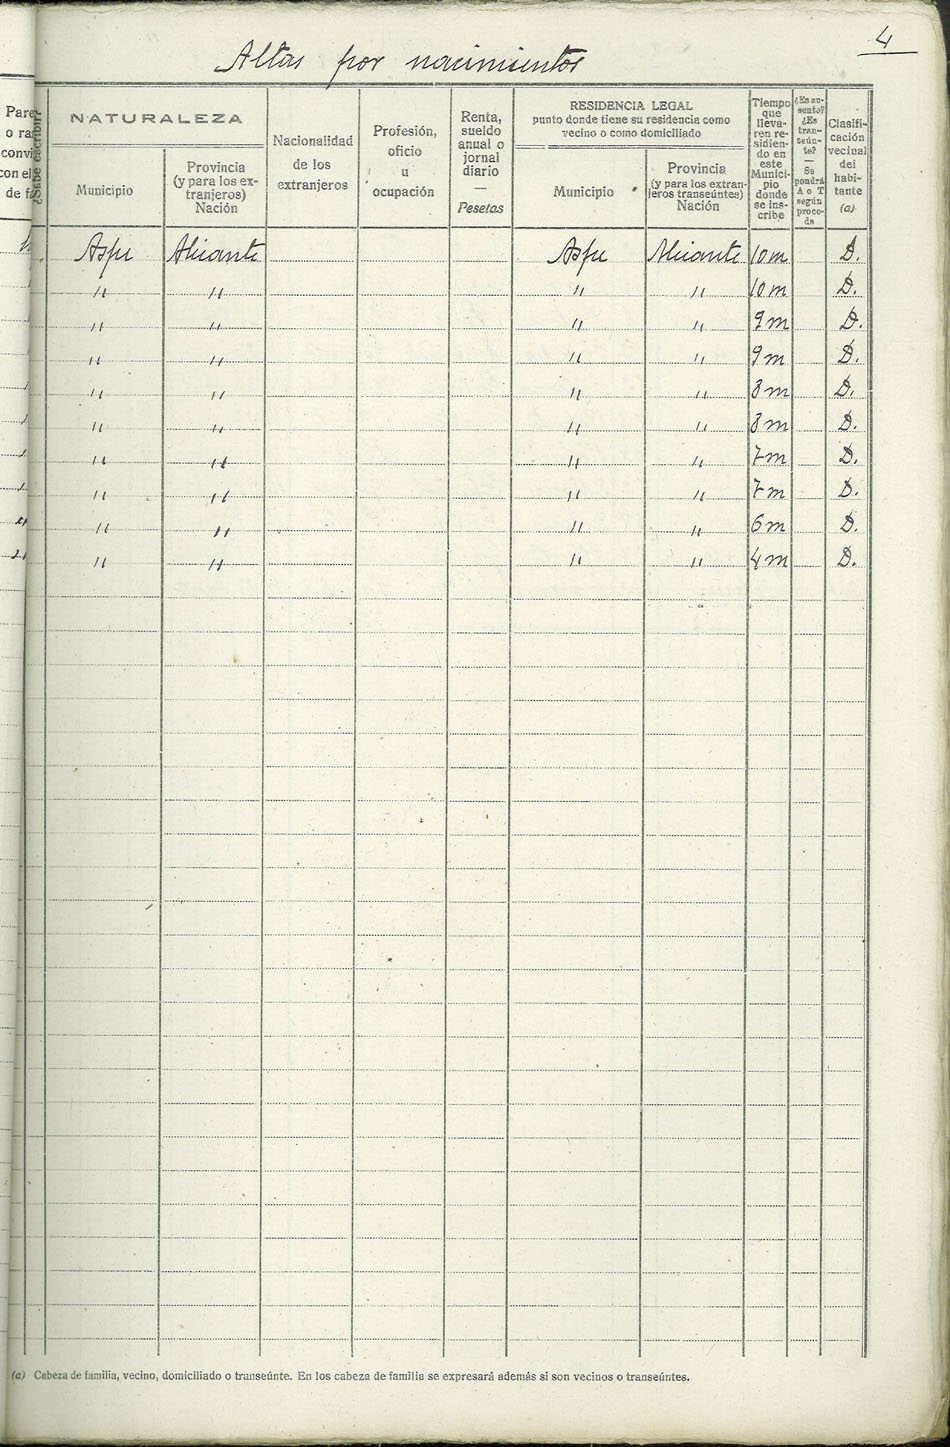 4
Altas por nacimientos
Pare
o ra
convi
con el
de fa
¿Sabe escribir?
NATURALEZA
Municipio
Provincia
(y para los ex-
tranjeros)
Nación
Nacionalidad
de los
extranjeros
Profesión,
oficio
u
ocupación
Renta,
sueldo
anual o
jornal
diario
—
Pesetas
RESIDENCIA LEGAL
punto donde tiene su residencia como
vecino o como domiciliado
Municipio
Provincia
(y para los extran-
jeros transeúntes)
Nación
Tiempo
que
lleva-
ren re-
sidien-
do en
este
Munici-
pio
donde
se ins-
cribe
¿Es au-
sente?
¿Es
tran-
seún-
te?
—
Se
pondrá
A o T
según
proce-
da
Clasifi-
cación
vecinal
del
habi-
tante
(a)
Aspe Alicante Aspe Alicante 10 m D.
" " " " 10 m D.
" " " " 9 m D.
" " " " 9 m D.
" " " " 8 m D.
" " " " 8 m D.
" " " " 7 m D.
" " " " 7 m D.
" " " " 6 m D.
" " " " 4 m D.
(a) Cabeza de familia, vecino, domiciliado o transeúnte. En los cabeza de familia se expresará además si son vecinos o transeúntes.